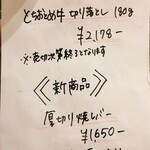 とちおとめ牛 切り落とし 180g
¥2,178-
※売切次第終了となります
<新商品>
厚切り焼レバー
¥1,650-